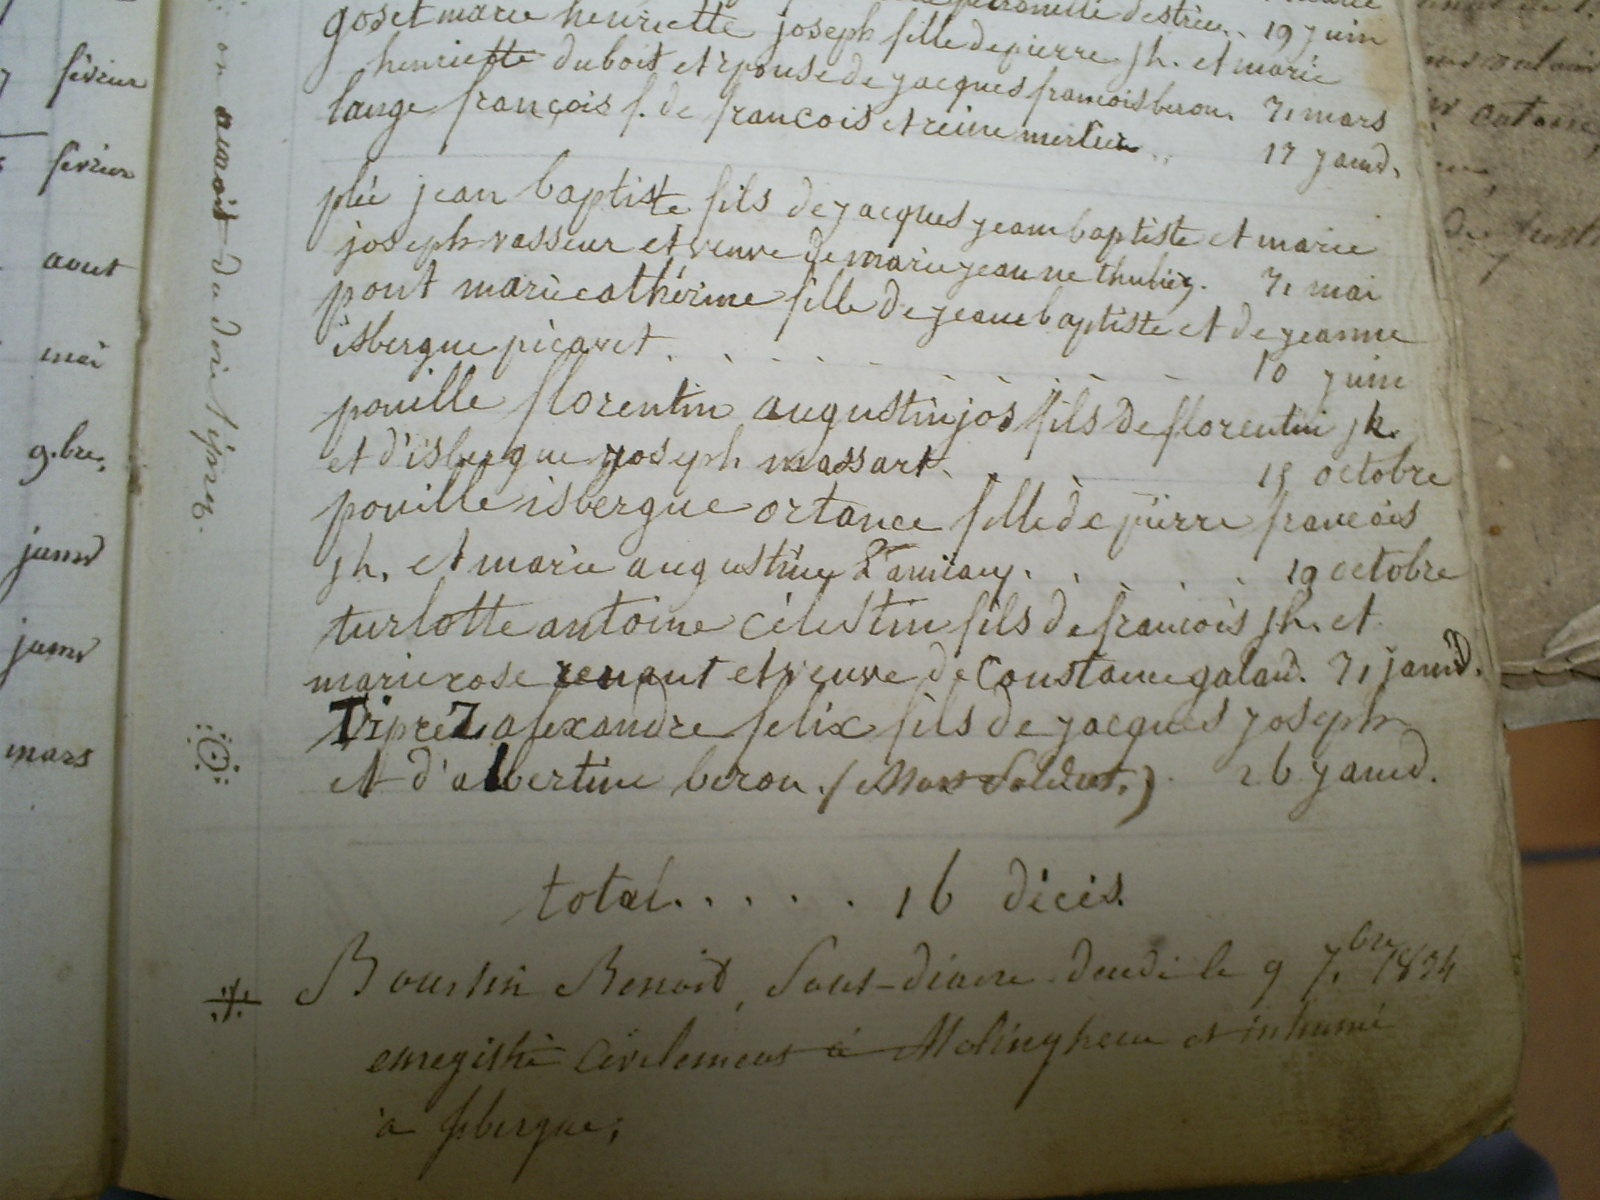 février
février
aout
mai
9.bre.
janvr
janvr
mars
on avoit du dire tiprez.
petronille destrée.. 19 juin
goset marie henriette joseph fille de pierre jh. et marie
henriette dubois et épouse de jacques francois beron. 31 mars
lange françois f. de francois et reine merlier.. 17 janvd.
plé jean baptiste fils de jacques jean baptiste et marie
joseph vasseur et veuve de marie jeanne thuliez. 31 mai
pont marie cathérine fille de jean baptiste et de jeanne
isbergue picavet. . . . . . . . . . 10 juin
pouille florentin augustin jos fils de florentin jh.
et d'isbergue joseph massart. 15 octobre
pouille isbergue ortance fille de pierre francois
jh. et marie augustine . . . . . 19 octobre
turlotte antoine célestin fils de francois jh. et
marie rose renaut et veuve de Constance galand. 31 janvd.
Tiprez alexandre felix fils de jacques joseph
et d'albertine beron. (Mort Soldat.) 26 janvd.
total. . . . . 16 décés.
Boursin Benoit, Sous-diacre décédé le 9 7.bre 1834
enregistré civilement à Molinghem et inhumé
à Isbergue;
antoine
de